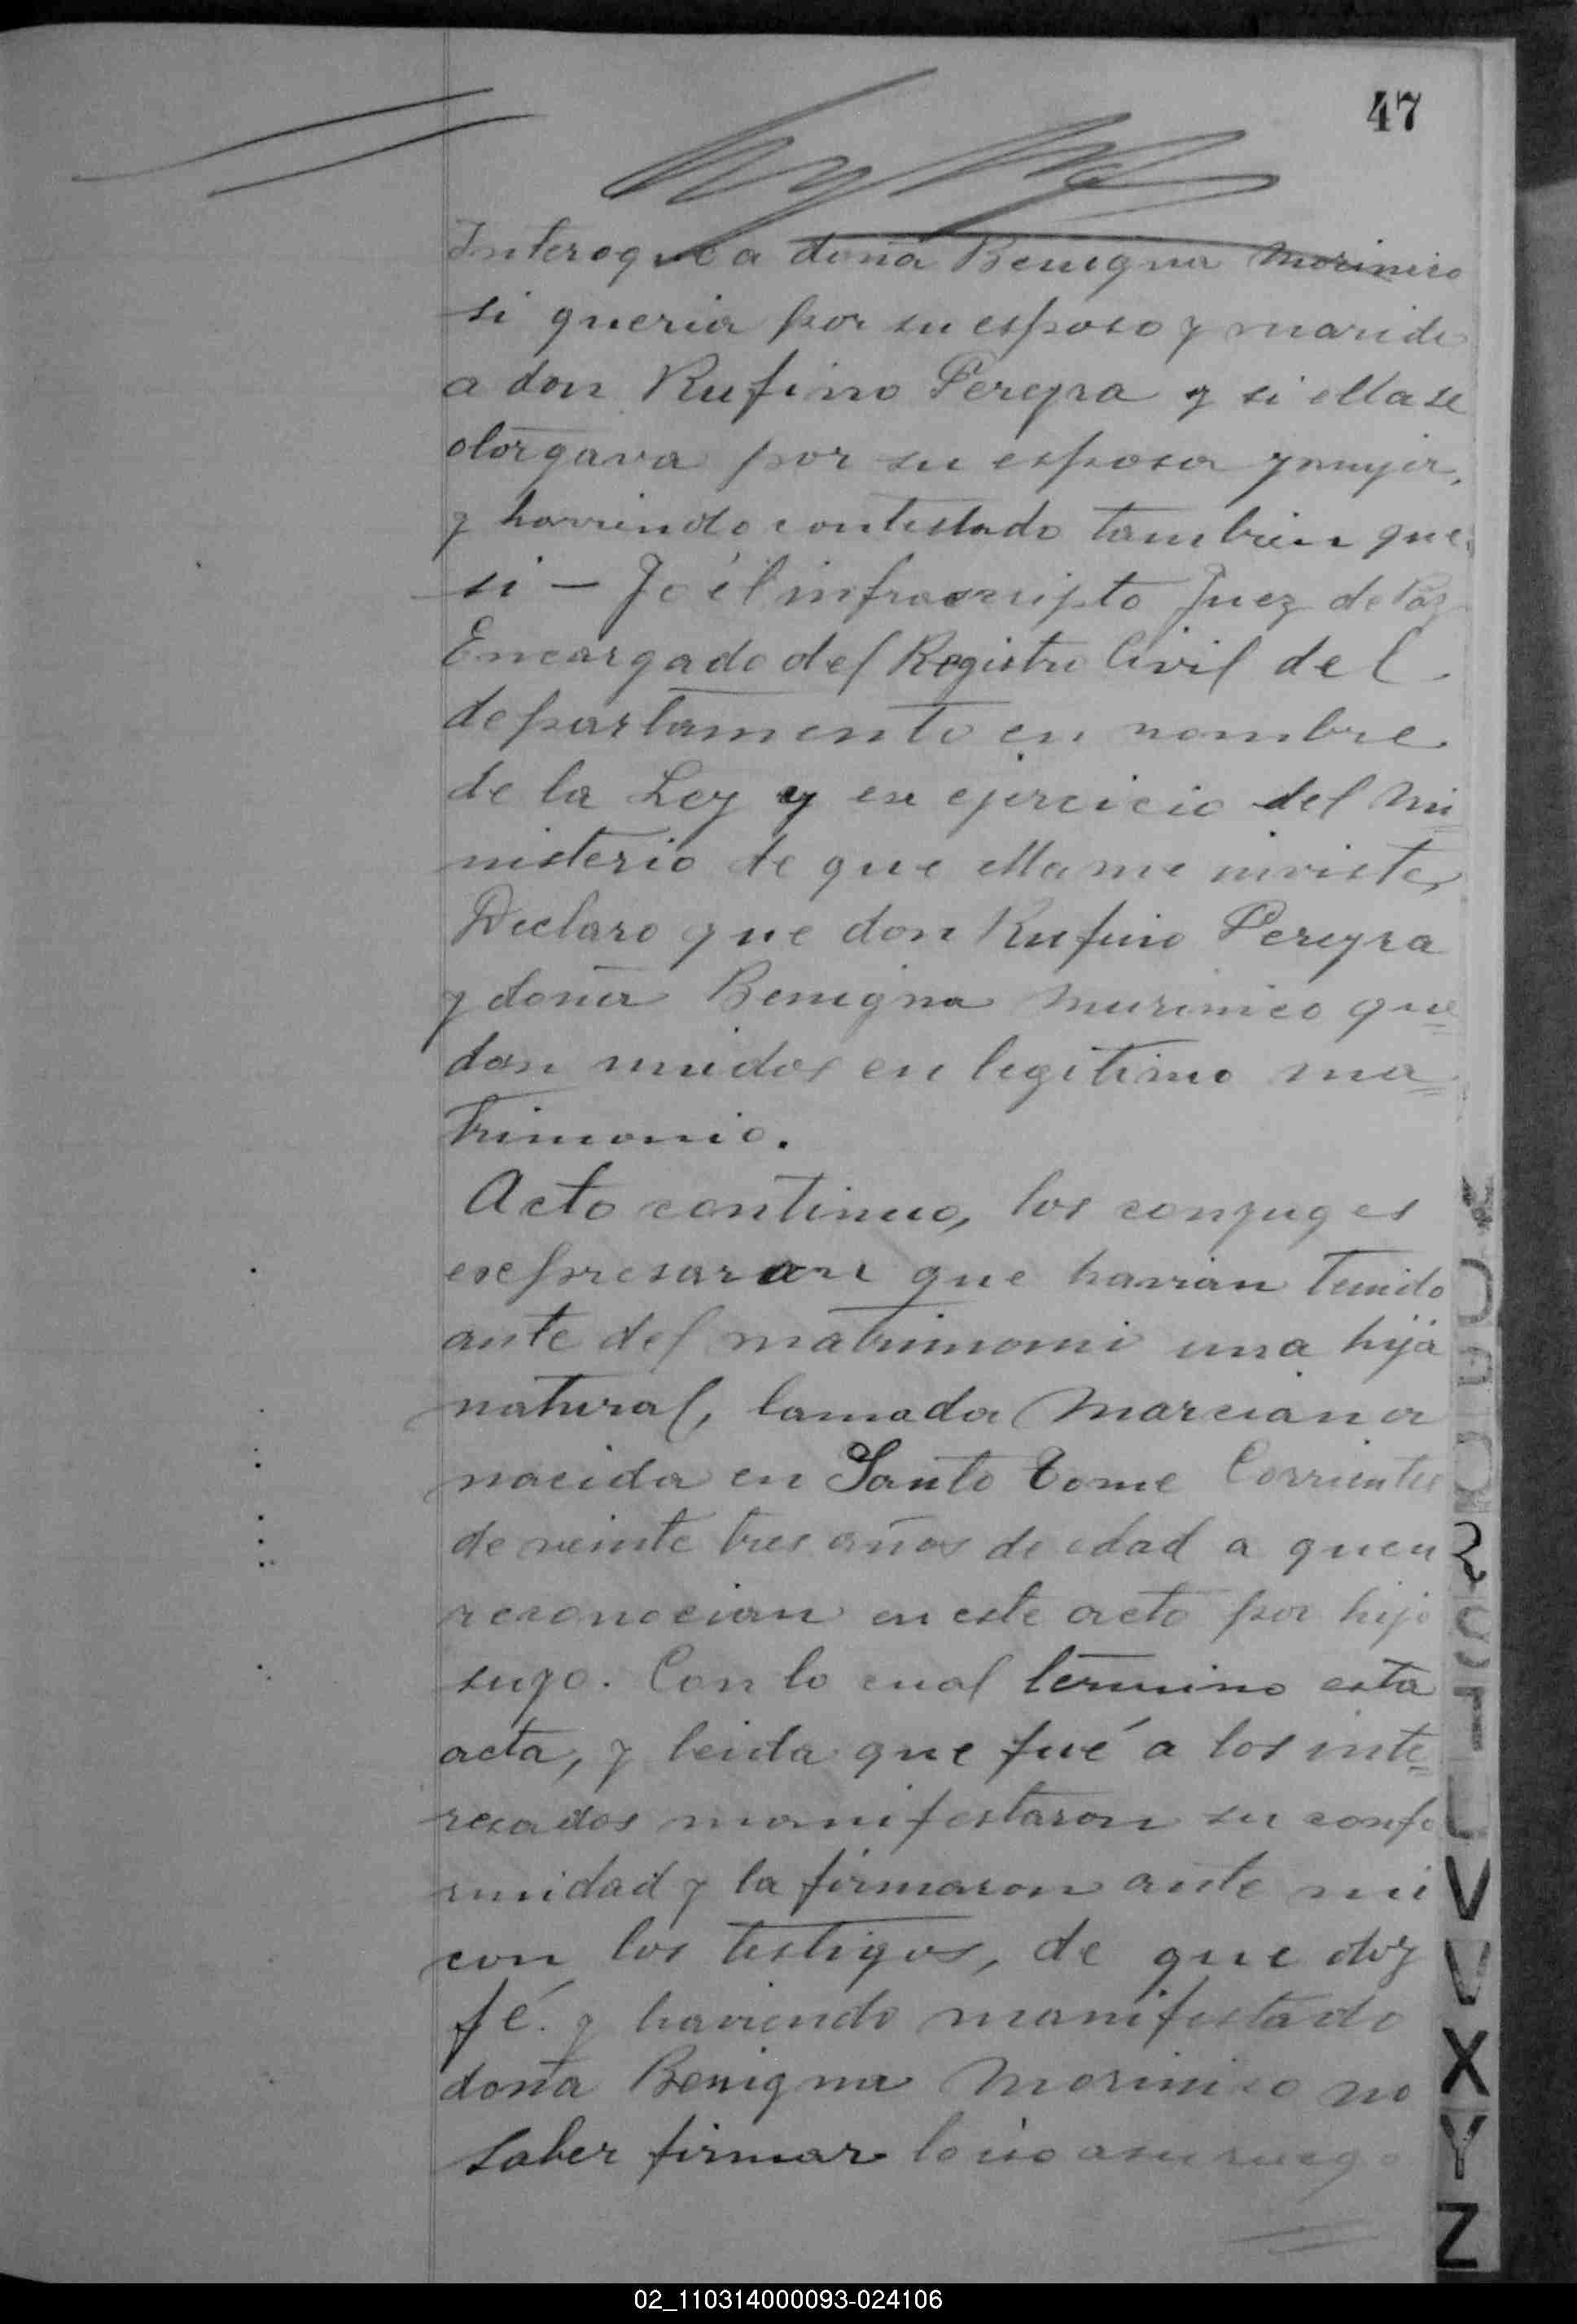 47
Interogue a doña Benigna Morinico
si queria por su esposo y marido
a don Rufino Pereyra y si ella se
otorgava por su esposa y mujer,
y haviendo contestado tambien que
si — Yo él infrascripto Juez de Paz
Encargado del Registro Civil del
departamento en nombre
de la Ley y en ejercicio del mi
nisterio de que ella me inviste,
Declaro que don Rufino Pereyra
y doña Benigna Murinico que
dan unidos en legitimo ma
trimonio.
Acto continuo, los conyuges
expresaron que havian tenido
ante del matrimoni una hija
natural, lamada Marciana
nacida en Santo Tome Corrientes
de veinte tres años de edad a quen
reconocian en este acto por hijo
suyo. Con lo cual termino esta
acta, y leida que fué a los inte
resados manifestaron su confo
rmidad y la firmaron ante mi
con los testigos, de que doy
fé. y haviendo manifestado
doña Benigna Morinico no
saber firmar lo iso a su ruego
V
V
X
Y
Z
02_110314000093-024106